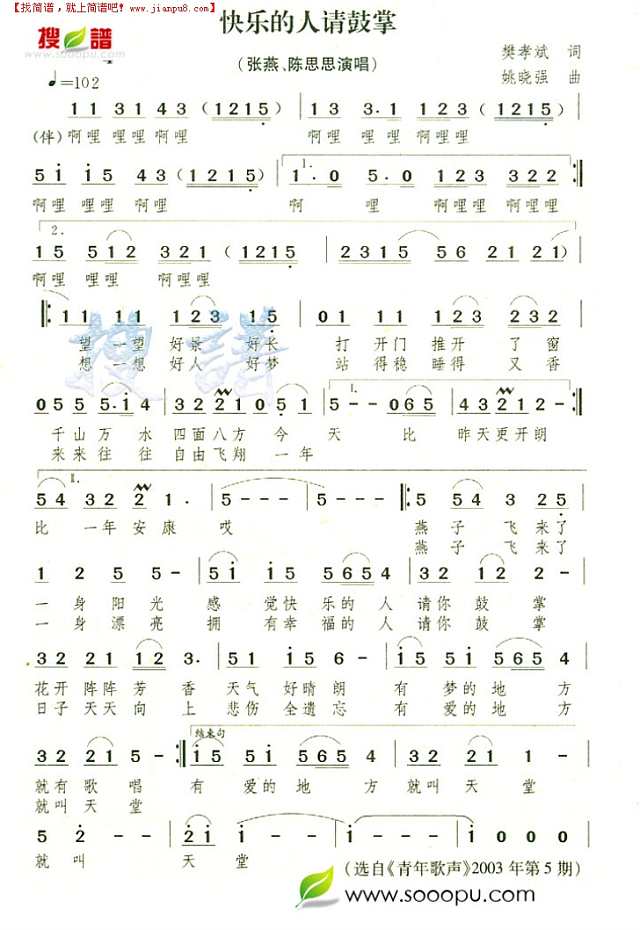 【找简谱，就上简谱吧！www.jianpu8.com】
搜谱
快乐的人请鼓掌
（张燕、陈思思演唱）
樊孝斌 词
姚晓强 曲
♩=102
1 1 3 1 4 3 （1 2 1 5） 1 3 3· 1 1 2 2 3 （1 2 1 5）
(伴)啊哩 哩哩 啊哩 啊哩 哩哩 啊哩哩哩
5 1 1 5 4 3 （1 2 1 5） 1. 1· 0 5· 0 1 2 3 3 2 2
啊哩 哩哩 啊哩 啊 哩 啊哩哩 啊哩哩
2. 1 5 5 1 2 3 2 2 1 （1 2 1 5 2 3 1 5 5 6 2 0 1 2 5 1）
啊哩 哩哩 啊哩
0 1 1 1 1 1 2 3 1 5 0 1 1 1 1 1 2 3 2 1
望一望 好景 好长 打开门 推开 了窗
想一想 好人 好梦 站得稳 睡得 又香
0 5 5 5 5· 1 4 3 2 2 2 1 0 5 1 5 - - 0 6 5 4 3 2 1 2 -
千山万水 四面八方 今天 比 昨天更开朗
来来往往 自由飞翔 一年
5 4 3 2 2 1· 5 - - 5 - - 5 4 5 3 2 2
比 一年安康 哎 燕子 飞来了
燕子 飞来了
1 2 5 5 - 5 1 1 5 5 6 5 4 3 2 2 1 2 -
一身阳光 感 觉快乐的人 请你鼓掌
一身漂亮 拥 有幸福的人 请你鼓掌
3 2 2 1 1 2 3· 5 1 1 5 6 - 4 5 5 1 5 6 5 4
花开阵阵芳香 天气好晴朗 有梦的地方
日子天天向上 悲伤全遗忘 有爱的地方
3 2 2 1 5 - 结束句 1 5 5 1 1 5 5 6 5 4 3 2 2 3 2 1 -
就有歌唱 有爱的地方 就叫天堂
就叫天堂
5 2 - - 2 1 1 - 1 - - 1 - 1 0 0 0
就叫 天堂
（选自《青年歌声》2003年第5期）
www.sooopu.com